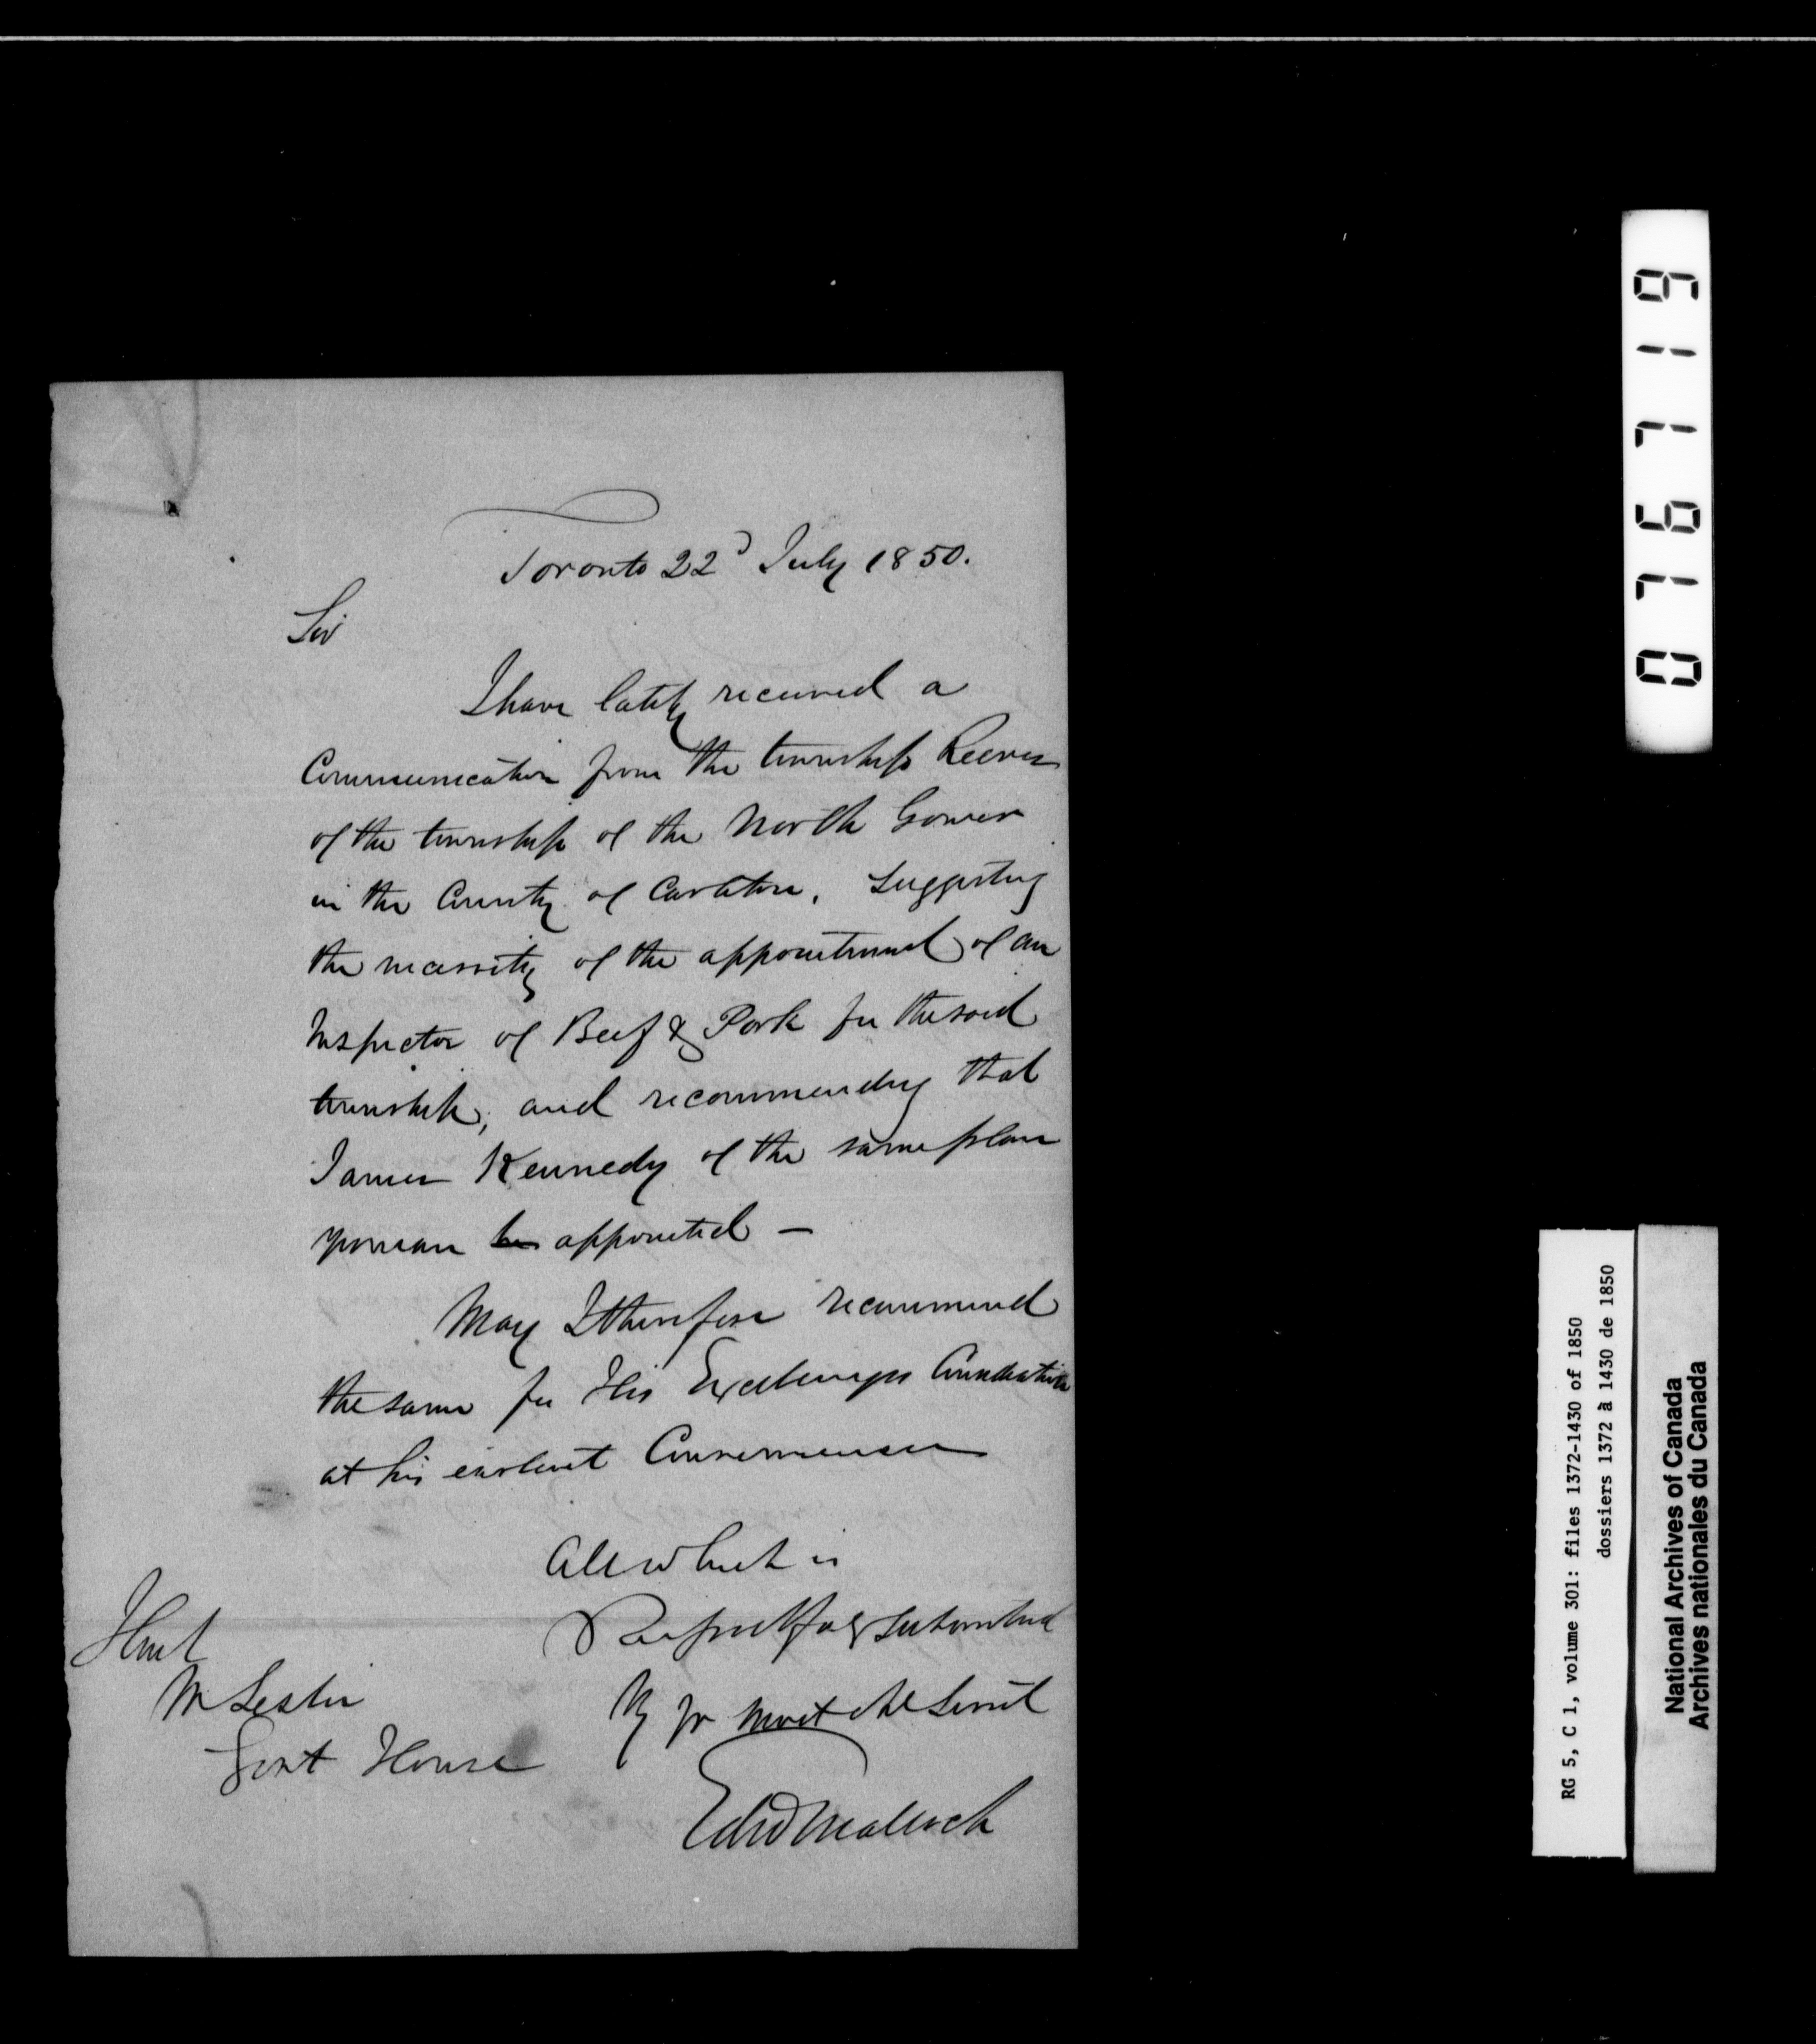 Toronto 22d July 1850.
Sir
I have lately received a
Communication from the township Reeves
of the township of the North Gower
in the County of Carleton, Suggesting
the necessity of the appointment of an
Inspector of Beef & Pork for the said
township, and recommending that
James Kennedy of the same place
yeoman be appointed —
May I therefore recommend
the same for His Excellencys Consideration
at his earliest Convenience
All which is
Respectfully Submitted
Yr most Ob Servt
Edwd Malloch
Honl
Mr Leslie
Govt House
076719
RG 5, C 1, volume 301: files 1372-1430 of 1850
dossiers 1372 à 1430 de 1850
National Archives of Canada
Archives nationales du Canada